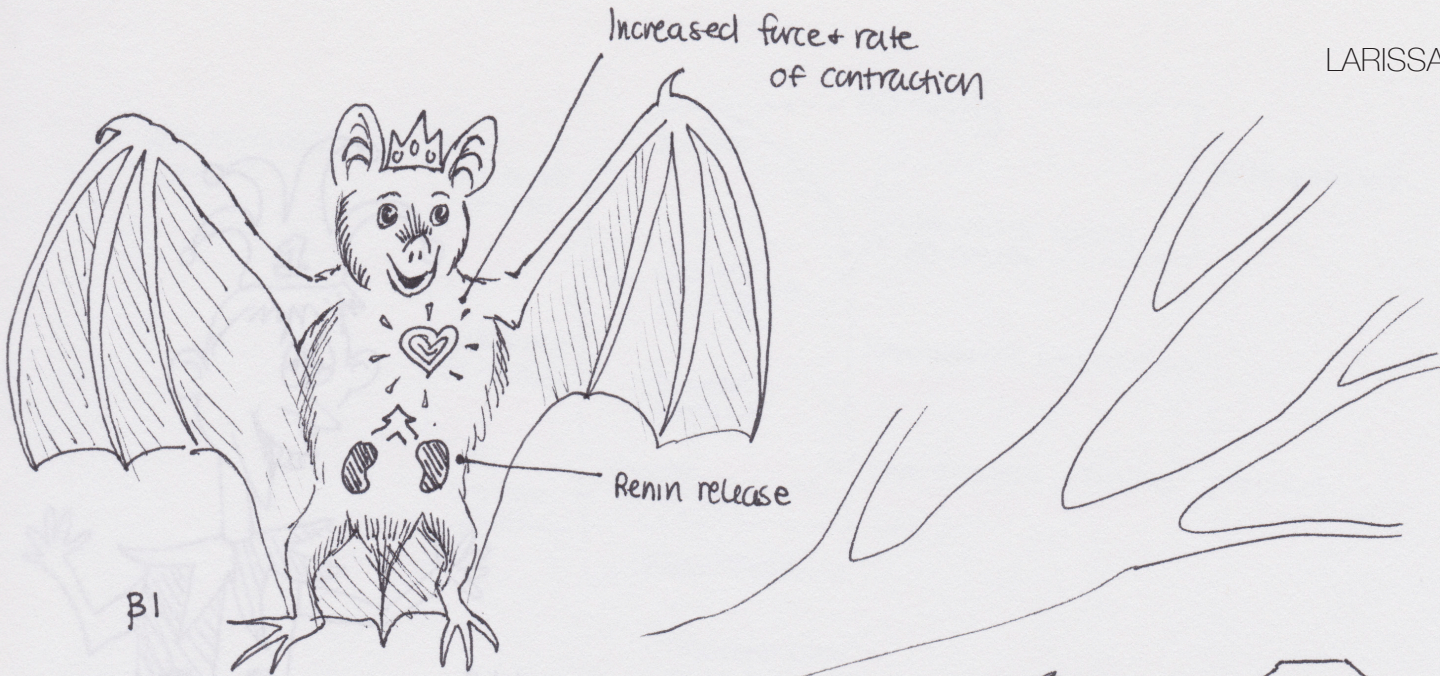 Increased force + rate
of contraction
LARISSA
Renin release
β1